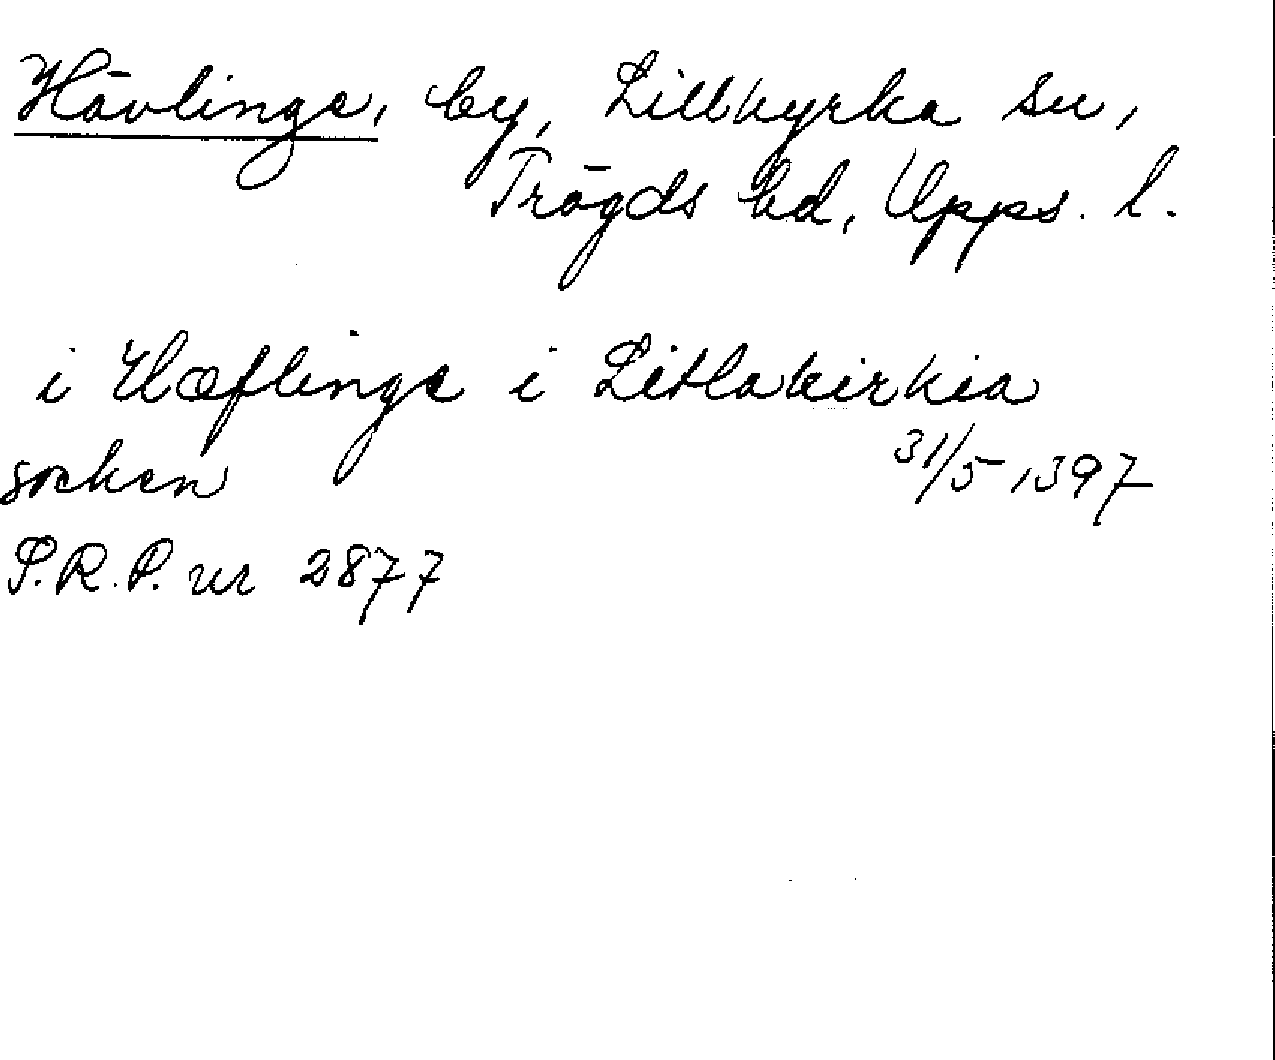 Hävlinge, by, Lillkyrka sn,
Trögds hd, Upps. l.
i Hæflinge i Litlakirkia
socken 31/5 1397
S.R.P. nr 2877